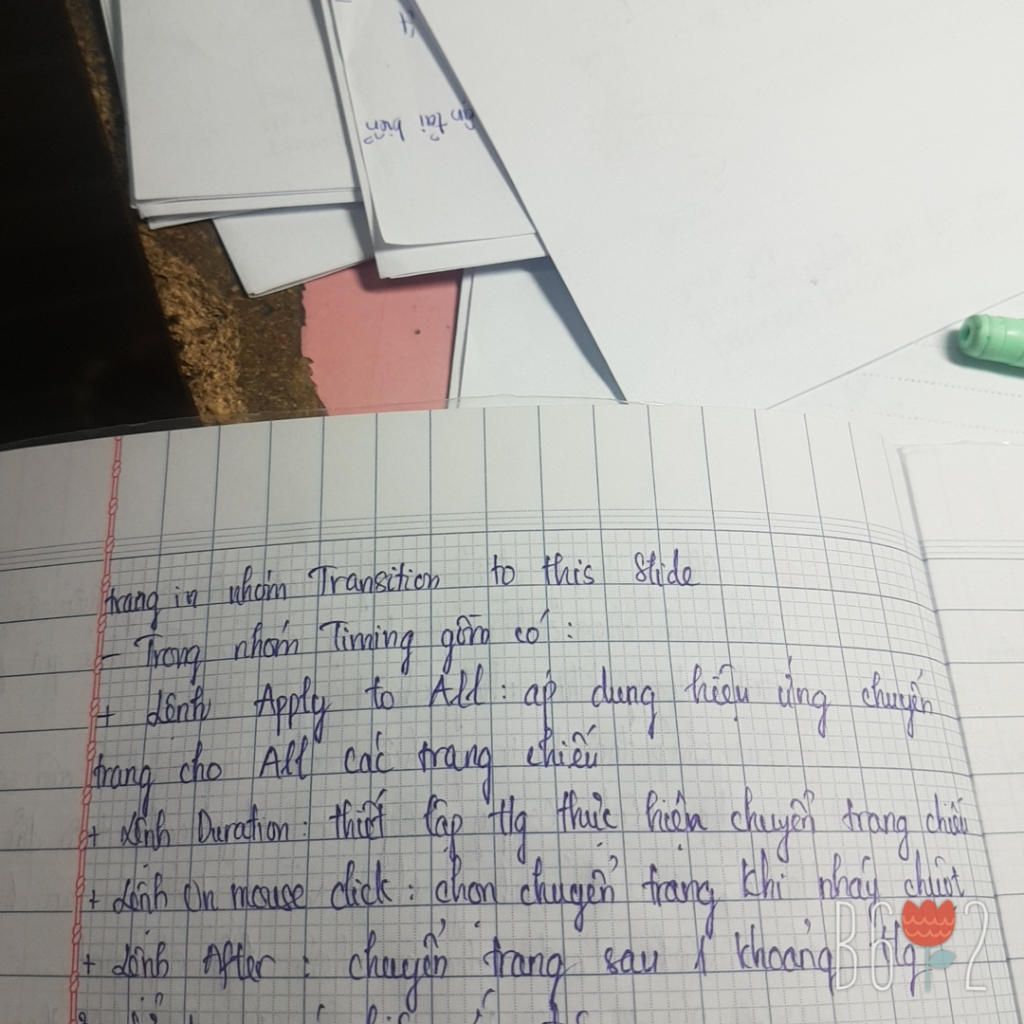 ận tải biển
trang in nhóm Transition to this Slide
- Trong nhóm Timing gồm có :
+ Lệnh Apply to All : áp dụng hiệu ứng chuyển
trang cho All các trang chiếu
+ Lệnh Duration : thiết lập tlg thực hiện chuyển trang chiếu
+ Lệnh On mouse click : chọn chuyển trang khi nháy chuột
+ Lệnh After : chuyển trang sau 1 khoảng tlg